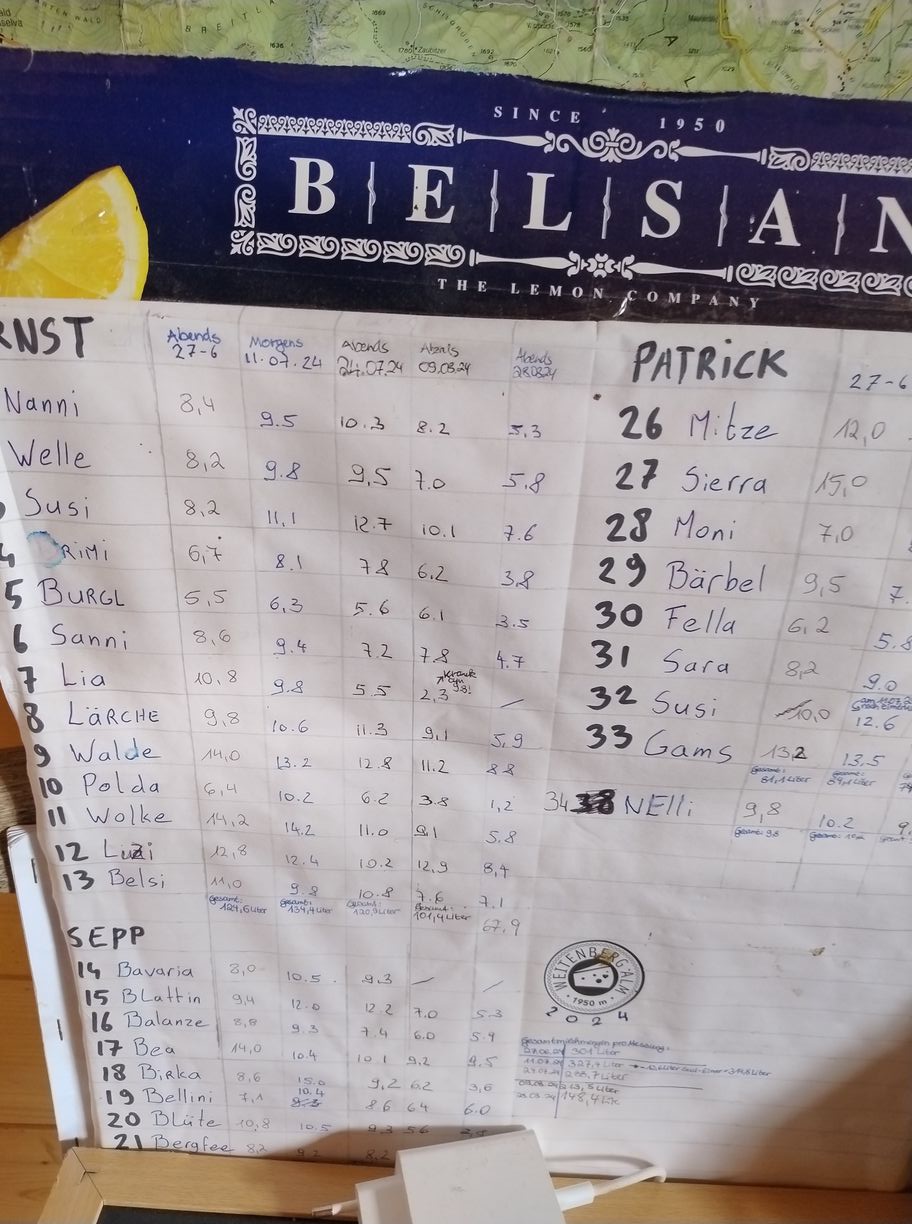 SINCE 1950
BELSAN
THE LEMON COMPANY
RNST Abends 27-6 Morgens 11.07.24 Abends 24.07.24 09.08.24 Abends 28.08.24
Nanni 8,4 9.5 10.3 8.2 5,3
Welle 8,2 9.8 9,5 7.0 5,8
Susi 8,2 11,1 12.7 10.1 7.6
4 RiMi 6,7 8.1 7.8 6,2 3,8
5 BURGL 5,5 6,3 5.6 6.1 3.5
6 Sanni 8,6 9.4 7.2 7.8 4.7
7 Lia 10,8 9.8 5.5 2,3 /
8 LÄRCHE 9,8 10.6 11.3 9,1 5,9
9 Walde 14,0 13.2 12.8 11.2 8.8
10 Polda 6,4 10.2 6.2 3.8 1,2
11 Wolke 14,2 14.2 11.0 9.1 5.8
12 Luzi 12,8 12.4 10.2 12,9 8,4
13 Belsi 11,0 9.8 10.8 7.6 7.1
Gesamt: 124,6 Liter Gesamt: 134,4 Liter Gesamt: 120,9 Liter Gesamt: 101,4 Liter 67.9
SEPP
14 Bavaria 8,0 10.5 9.3 / /
15 BLattin 9,4 12.0 12.2 7.0 5.3
16 Balanze 8,8 9.3 7.4 6.0 5.9
17 Bea 14,0 10.4 10.1 9.2 9,5
18 Birka 8,6 15.0 9,2 6.2 3,6
19 Bellini 7,1 10.4 8.6 6.4 6.0
20 Blüte 10,8 10.5 9.3 5.6
21 Bergfee 8,2 9.2 8,2
PATRICK 27-6
26 Mitze 12,0
27 Sierra 15,0
28 Moni 7,0
29 Bärbel 9,5 7.
30 Fella 6,2 5.8
31 Sara 8,2 9.0
32 Susi 10,0 12.6
33 Gams 13,2 13.5
Gesamt: 81,1 Liter Gesamt: 89,1 Liter
34 NElli 9,8 10.2 9,
Gesamt: 9.8 Gesamt: 10.2
WEITENBERG-ALM
1950 m
2024
Gesamtmilchmengen pro Messung:
27.06.24 301 Liter
11.07.24 327,4 Liter
24.07.24 Liter
09.08.24 Liter
28.08.24 148,4 Liter